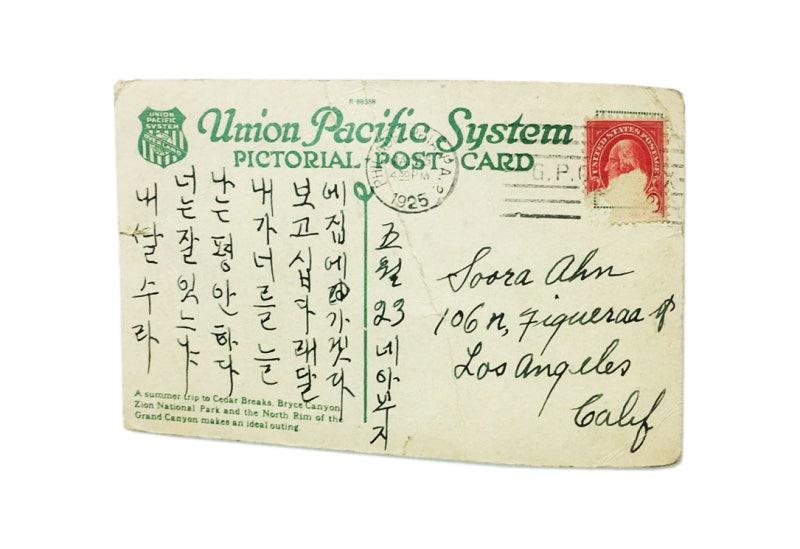 R-68358
UNION PACIFIC SYSTEM
OVERLAND
Union Pacific System
PICTORIAL POST CARD
PM
1925
UNITED STATES POSTAGE
내 ᄯᅡᆯ 수라
너는 잘 잇느냐
나는 평안하다
내가 너를 늘
보고 십다 래달
에 집에 가겟다
五월 23 네아부지
Soora Ahn
106 N, Figueroa St
Los Angeles
Calif
A summer trip to Cedar Breaks, Bryce Canyon,
Zion National Park and the North Rim of the
Grand Canyon makes an ideal outing.